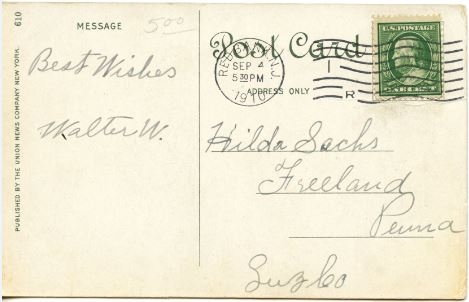 610
PUBLISHED BY THE UNION NEWS COMPANY NEW YORK.
MESSAGE
5.00
Best Wishes
Walter W.
Post Card
N.J.
SEP 4
5 30 PM
1910
1
R
U.S. POSTAGE
ADDRESS ONLY
Hilda Sachs
Freeland
Penna
Luz Co